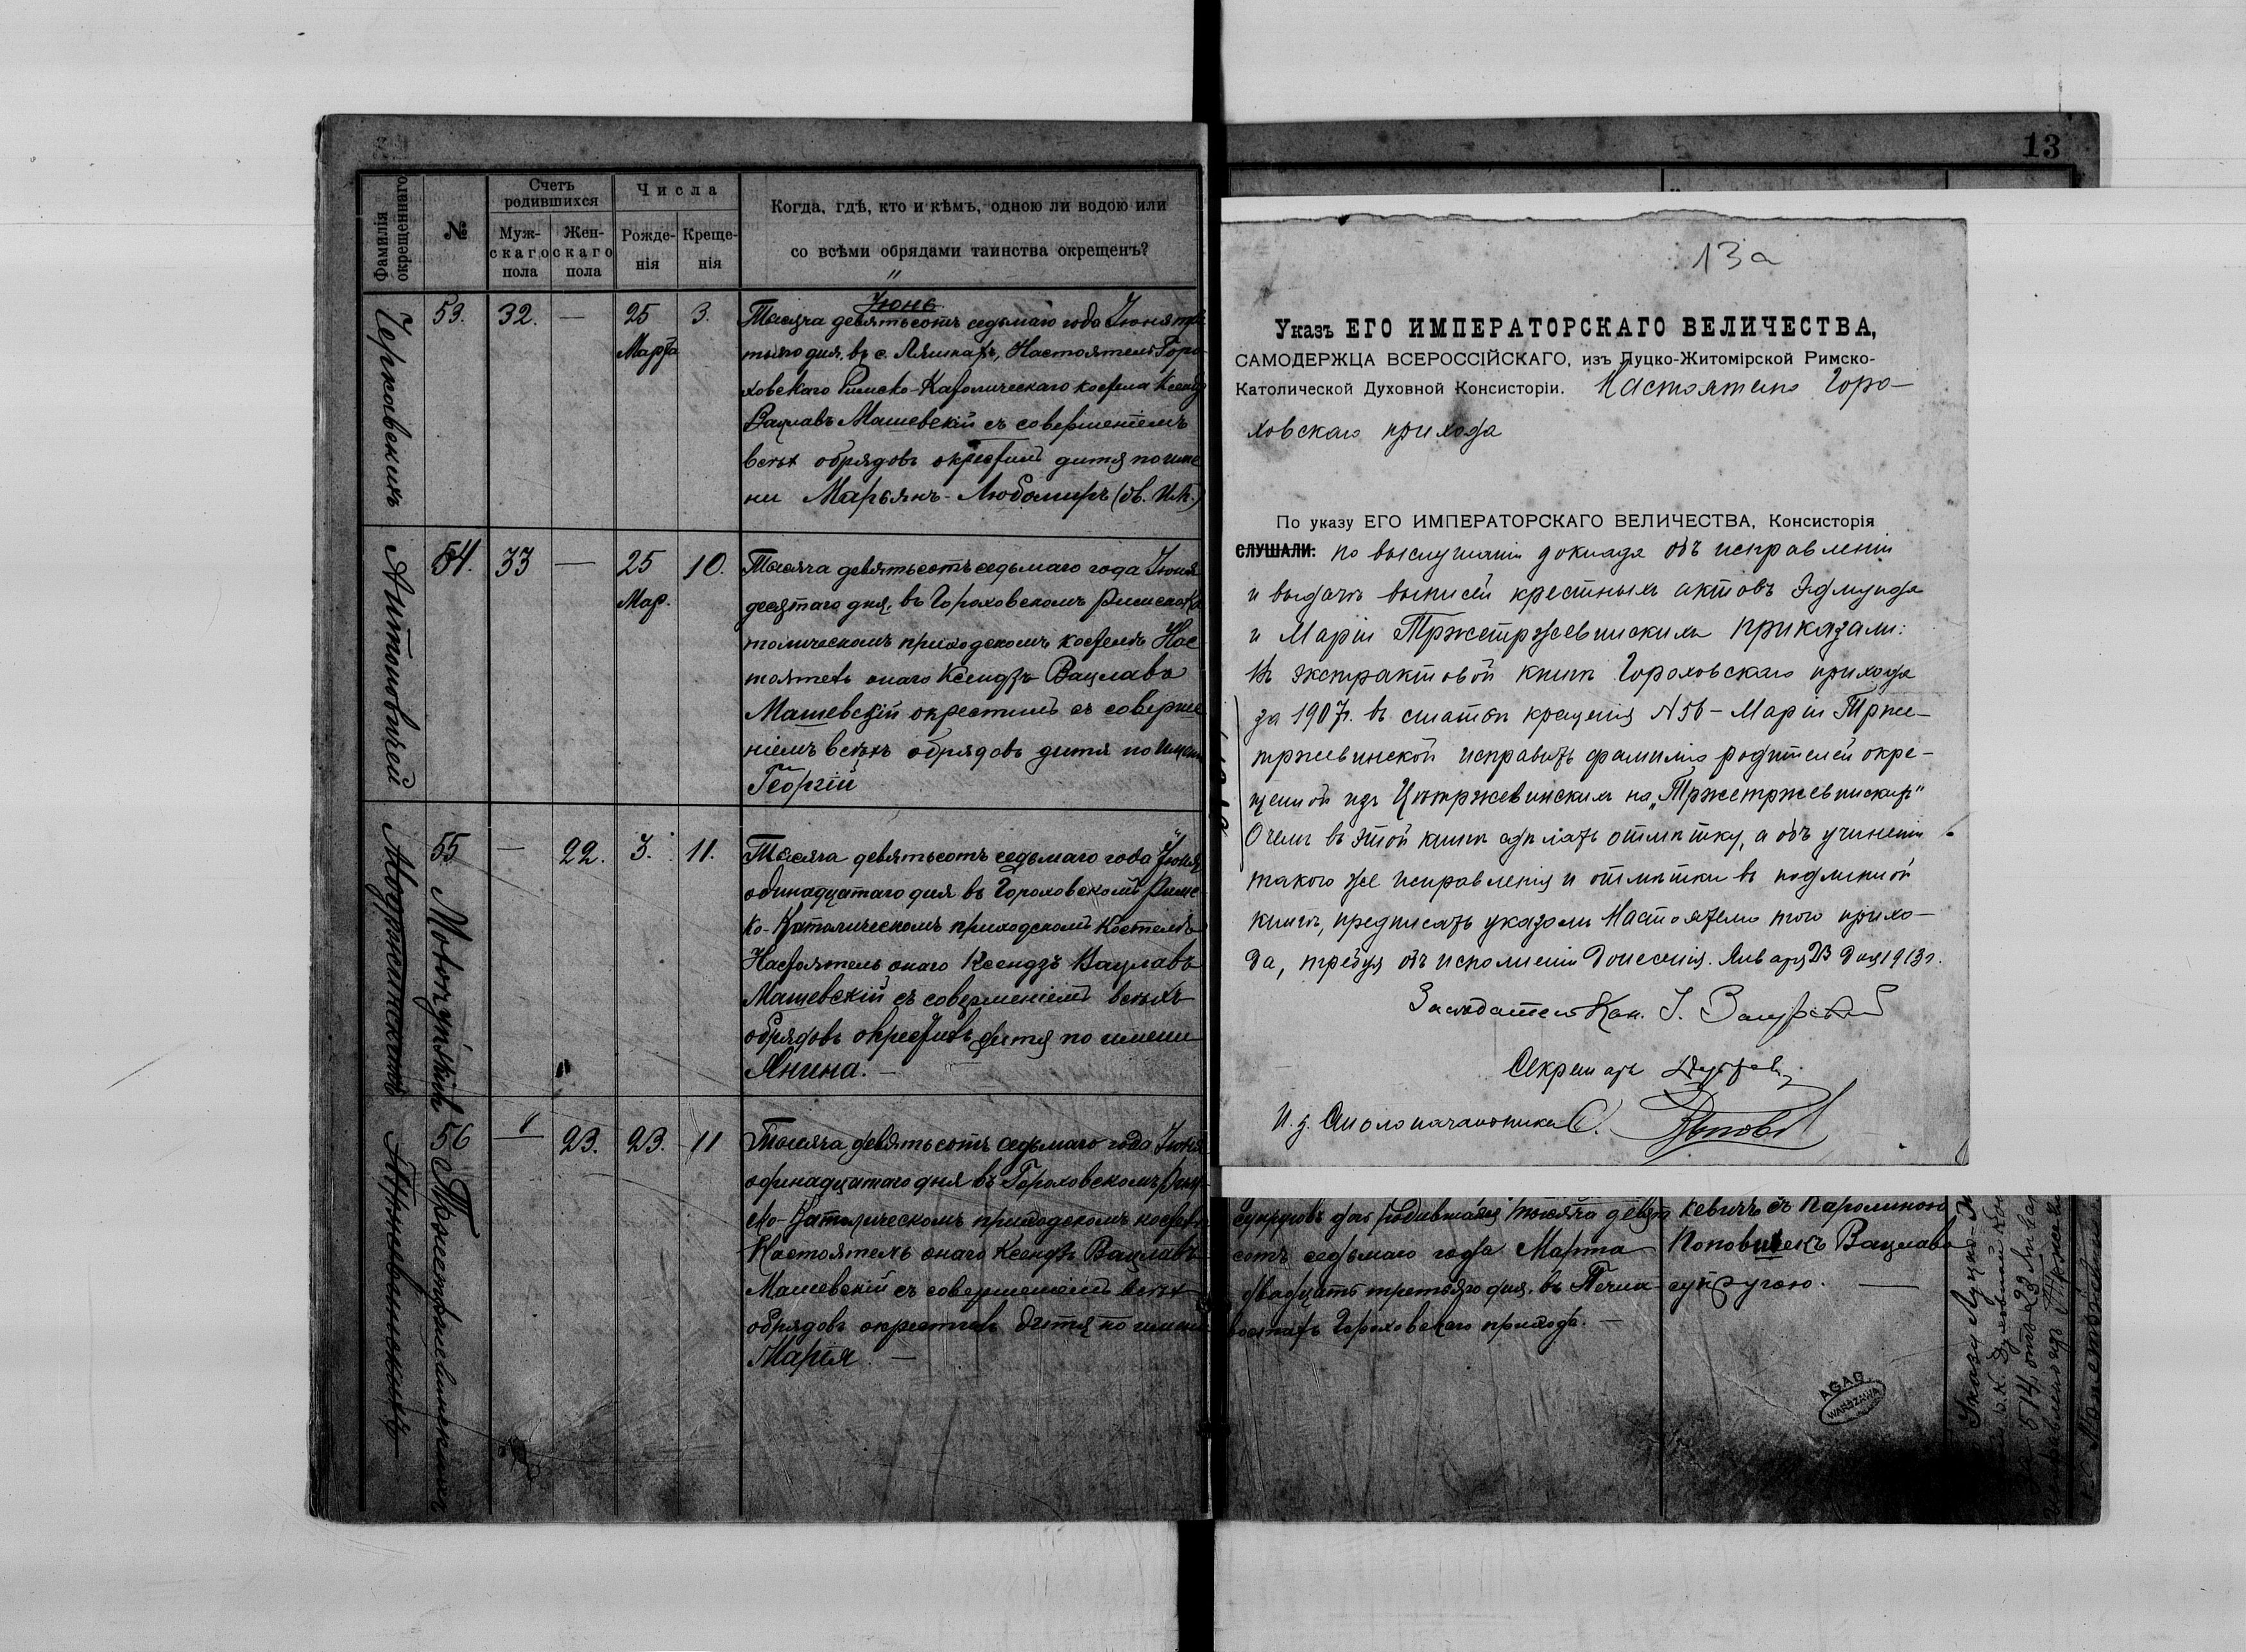 13
Фамилія окрещеннаго
№
Счетъ родившихся
Мужскаго пола
Женскаго пола
Числа
Рожденія
Крещенія
Когда, гдѣ, кто и кѣмъ, одною ли водою или
со всѣми обрядами таинства окрещенъ?
53. 32. — 25 Марта 3.
Іюнь
Тысяча девятьсотъ седьмаго года Іюня тре
тьяго дня, въ с. Настоятель Горо
ховскаго Римско-Католическаго костела Ксендзъ
Вацлавъ Машевскій съ совершеніемъ
всѣхъ обрядовъ окрестилъ дитя по име
ни Марьянъ-Любомиръ
Антоновичей
54. 33 — 25 Мар. 10.
Тысяча девятьсотъ седьмаго года Іюня
десятаго дня, въ Гороховскомъ Римско-Ка
толическомъ приходскомъ костелѣ Нас
тоятель онаго Ксендзъ Вацлавъ
Машевскій окрестилъ съ соверше
ніемъ всѣхъ обрядовъ дитя по имени
Георгій
55 — 22. 3. 11.
Тысяча девятьсотъ седьмаго года Іюня
одинадцатаго дня въ Гороховскомъ Римс
ко-Католическомъ приходскомъ костелѣ
Настоятель онаго Ксендзъ Вацлавъ
Машевскій съ совершеніемъ всѣхъ
обрядовъ окрестилъ дитя по имени
Янина. —
Тржетржевинскихъ
56 — 23. 23. 11
Тысяча девятьсотъ седьмаго года Іюня
одинадцатаго дня въ Гороховскомъ Рим
ско-Католическомъ приходскомъ костелѣ
Настоятель онаго Ксендзъ Вацлавъ
Машевскій съ совершеніемъ всѣхъ
обрядовъ окрестилъ дитя по имени
Марія. —
13а
Указъ ЕГО ИМПЕРАТОРСКАГО ВЕЛИЧЕСТВА,
САМОДЕРЖЦА ВСЕРОССІЙСКАГО, изъ Луцко-Житомірской Римско-
Католической Духовной Консисторіи. Настоятелю Горо-
ховскаго прихода
По указу ЕГО ИМПЕРАТОРСКАГО ВЕЛИЧЕСТВА, Консисторія
СЛУШАЛИ: по выслушаніи доклада объ исправленіи
и выдачѣ выписей крестныхъ актовъ Эдмунда
и Маріи Тржетржевинскихъ приказали:
Въ экстрактовой книгѣ Гороховскаго прихода
за 1907г. въ статьѣ крещенія №56 – Маріи Трже-
тржевинской исправить фамилію родителей окре-
щенной изъ на „Тржетржевинскихъ"
О чемъ въ этой книгѣ сдѣлать отмѣтку, а объ учиненіи
такого же исправленія и отмѣтки въ подлинной
книгѣ, предписать указомъ Настоятелю того прихо-
да, требуя объ исполненіи донесенія. Января 23 дня 1913г.
Засѣдатель Кан. І.
Секретарь
И. д. Столоначальника
супруговъ дочь родившаяся тысяча девять
сотъ седьмаго года Марта
двадцать третьяго дня, въ
Гороховскаго прихода. —
кевичъ съ Каролиною
Вацлава
супругою. —
AGAD
WARSZAWA